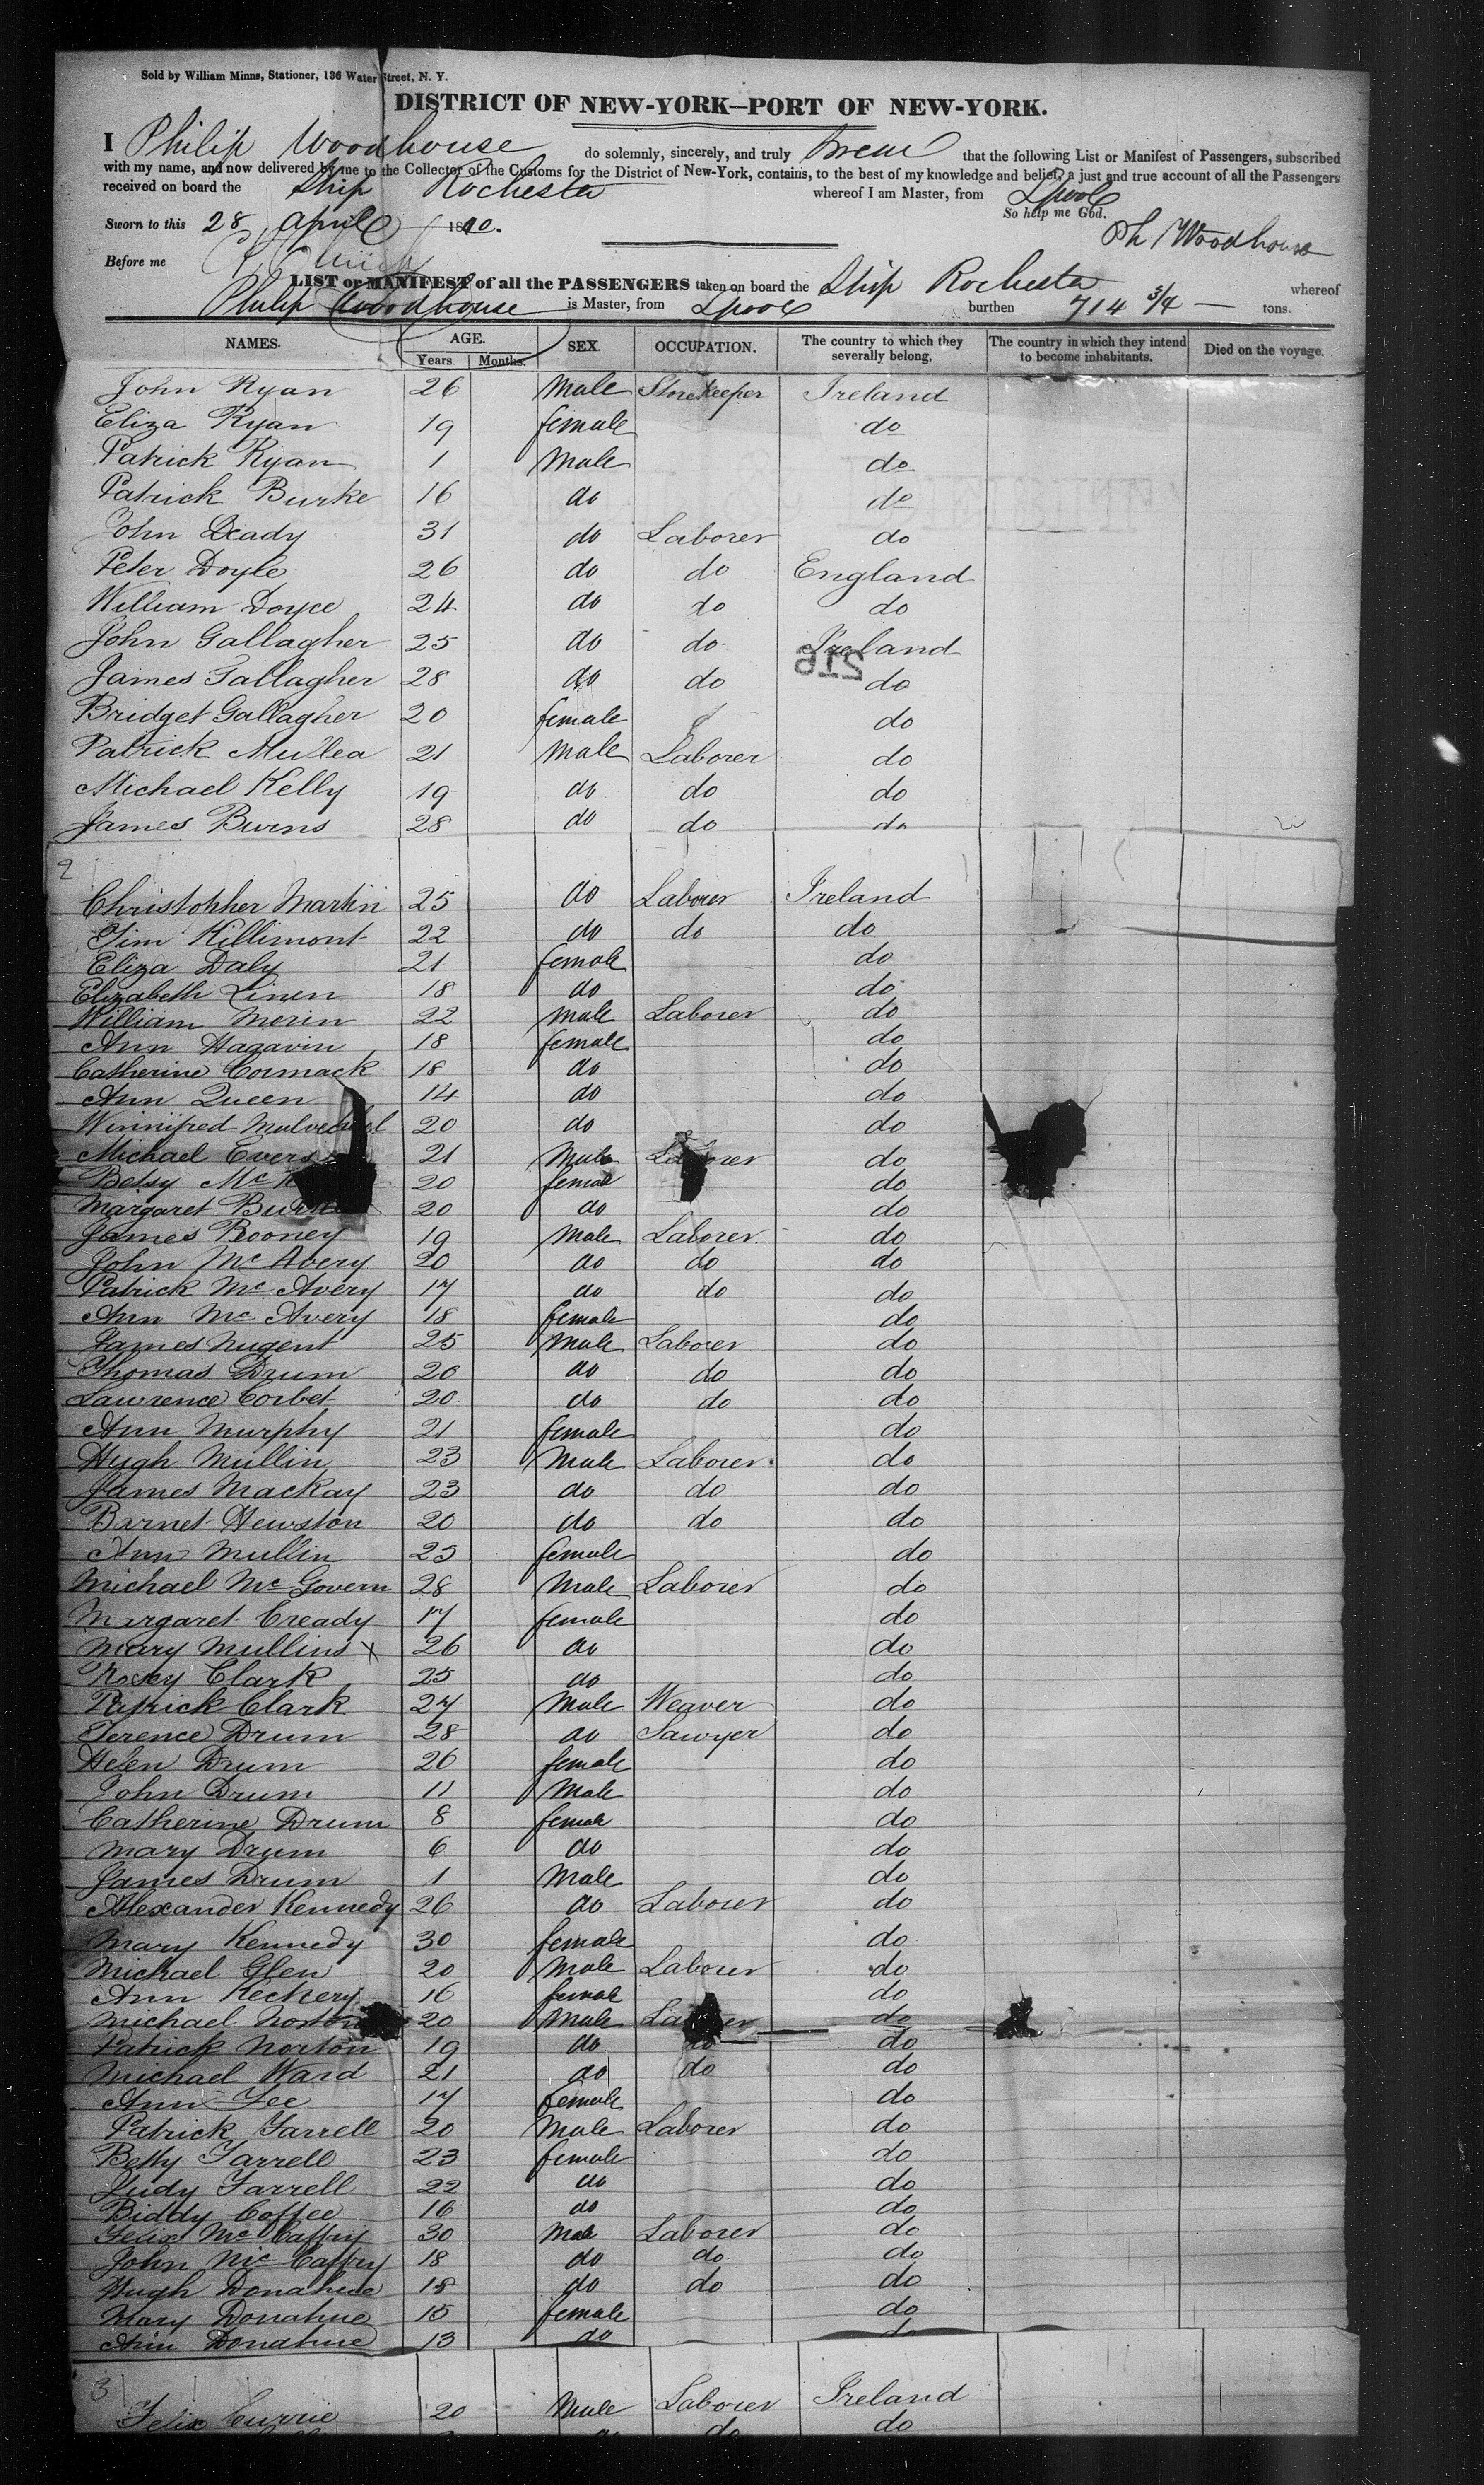 Sold by William Minns, Stationer, 136 Water Street, N. Y.
DISTRICT OF NEW-YORK—PORT OF NEW-YORK.
I Philip Woodhouse do solemnly, sincerely, and truly swear that the following List or Manifest of Passengers, subscribed
with my name, and now delivered by me to the Collector of the Customs for the District of New-York, contains, to the best of my knowledge and belief, a just and true account of all the Passengers
received on board the Ship Rochester whereof I am Master, from Lpool
So help me God.
Sworn to this 28 April 1840.
Ph Woodhouse
Before me
LIST or MANIFEST of all the PASSENGERS taken on board the Ship Rochester whereof
Philip Woodhouse is Master, from Lpool burthen 714 3/4 tons.
NAMES. AGE. Years. Months. SEX. OCCUPATION. The country to which they severally belong. The country in which they intend to become inhabitants. Died on the voyage.
John Ryan 26 Male Storekeeper Ireland
Eliza Ryan 19 female do
Patrick Ryan 1 Male do
Patrick Burke 16 do do
John Deady 31 do Laborer do
Peter Doyle 26 do do England
William Doyce 24 do do do
John Gallagher 25 do do Ireland
James Gallagher 28 do do do
Bridget Gallagher 20 female do
Patrick Mullea 21 Male Laborer do
Michael Kelly 19 do do do
James Burns 28 do do do
2
Christopher Martin 25 do Laborer Ireland
Tim Killimont 22 do do do
Eliza Daly 21 female do
Elizabeth Linen 18 do do
William Merin 22 Male Laborer do
Ann Hagavin 18 female do
Catherine Cormack 18 do do
Ann Queen 14 do do
Winnifred 20 do do
Michael Evers 21 Male Laborer do
Betsy Mc 20 female do
Margaret 20 do do
James Rooney 19 Male Laborer do
John Mc Avery 20 do do do
Patrick Mc Avery 17 do do do
Ann Mc Avery 18 female do
James Nugent 25 Male Laborer do
Thomas Drum 26 do do do
Lawrence Corbet 20 do do do
Ann Murphy 21 female do
Hugh Mullin 23 Male Laborer do
James Mackay 23 do do do
Barnet Hewston 20 do do do
Ann Mullin 23 female do
Michael Mc Govern 28 Male Laborer do
Margaret Cready 17 female do
Mary Mullins x 26 do do
Rosey Clark 25 do do
Patrick Clark 27 Male Weaver do
Terence Drum 28 do Sawyer do
Helen Drum 26 female do
John Drum 11 Male do
Catherine Drum 8 female do
Mary Drum 6 do do
James Drum 1 Male do
Alexander Kennedy 26 do Laborer do
Mary Kennedy 30 female do
Michael Glen 20 Male Laborer do
Ann Keckery 16 female do
Michael Norton 20 Male Laborer do
Patrick Norton 19 do do do
Michael Ward 21 do do do
Ann Fee 17 female do
Patrick Farrell 20 Male Laborer do
Betty Farrell 23 female do
Judy Farrell 22 do do
Biddy Coffee 16 do do
Felix Mc Caffry 30 Male Laborer do
John Mc Caffry 18 do do do
Hugh Donahue 18 do do do
Mary Donahue 15 female do
Ann Donahue 13 do do
3
Felix Currie 20 Male Laborer Ireland
do do do